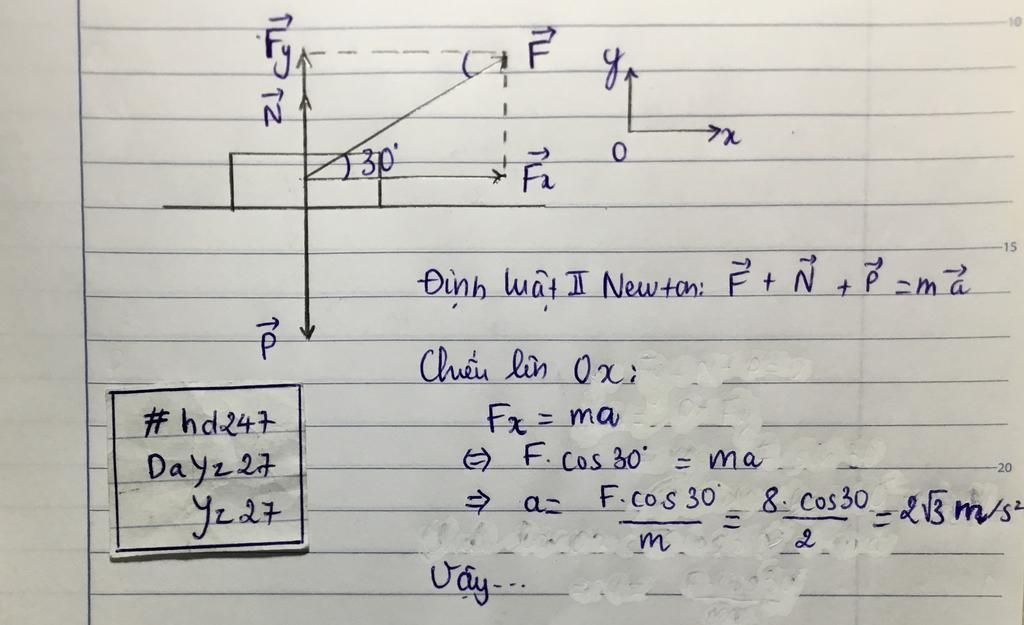 F⃗y
F⃗
N⃗
30°
F⃗x
y
x
0
P⃗
Định luật II Newton: F⃗ + N⃗ + P⃗ = ma⃗
Chiếu lên Ox:
Fx = ma
⇔ F.cos30° = ma
⇒ a = F.cos30°/m = 8.cos30/2 = 2√3 m/s²
Vậy...
# hd247
DaYz27
Yz27
10
15
20